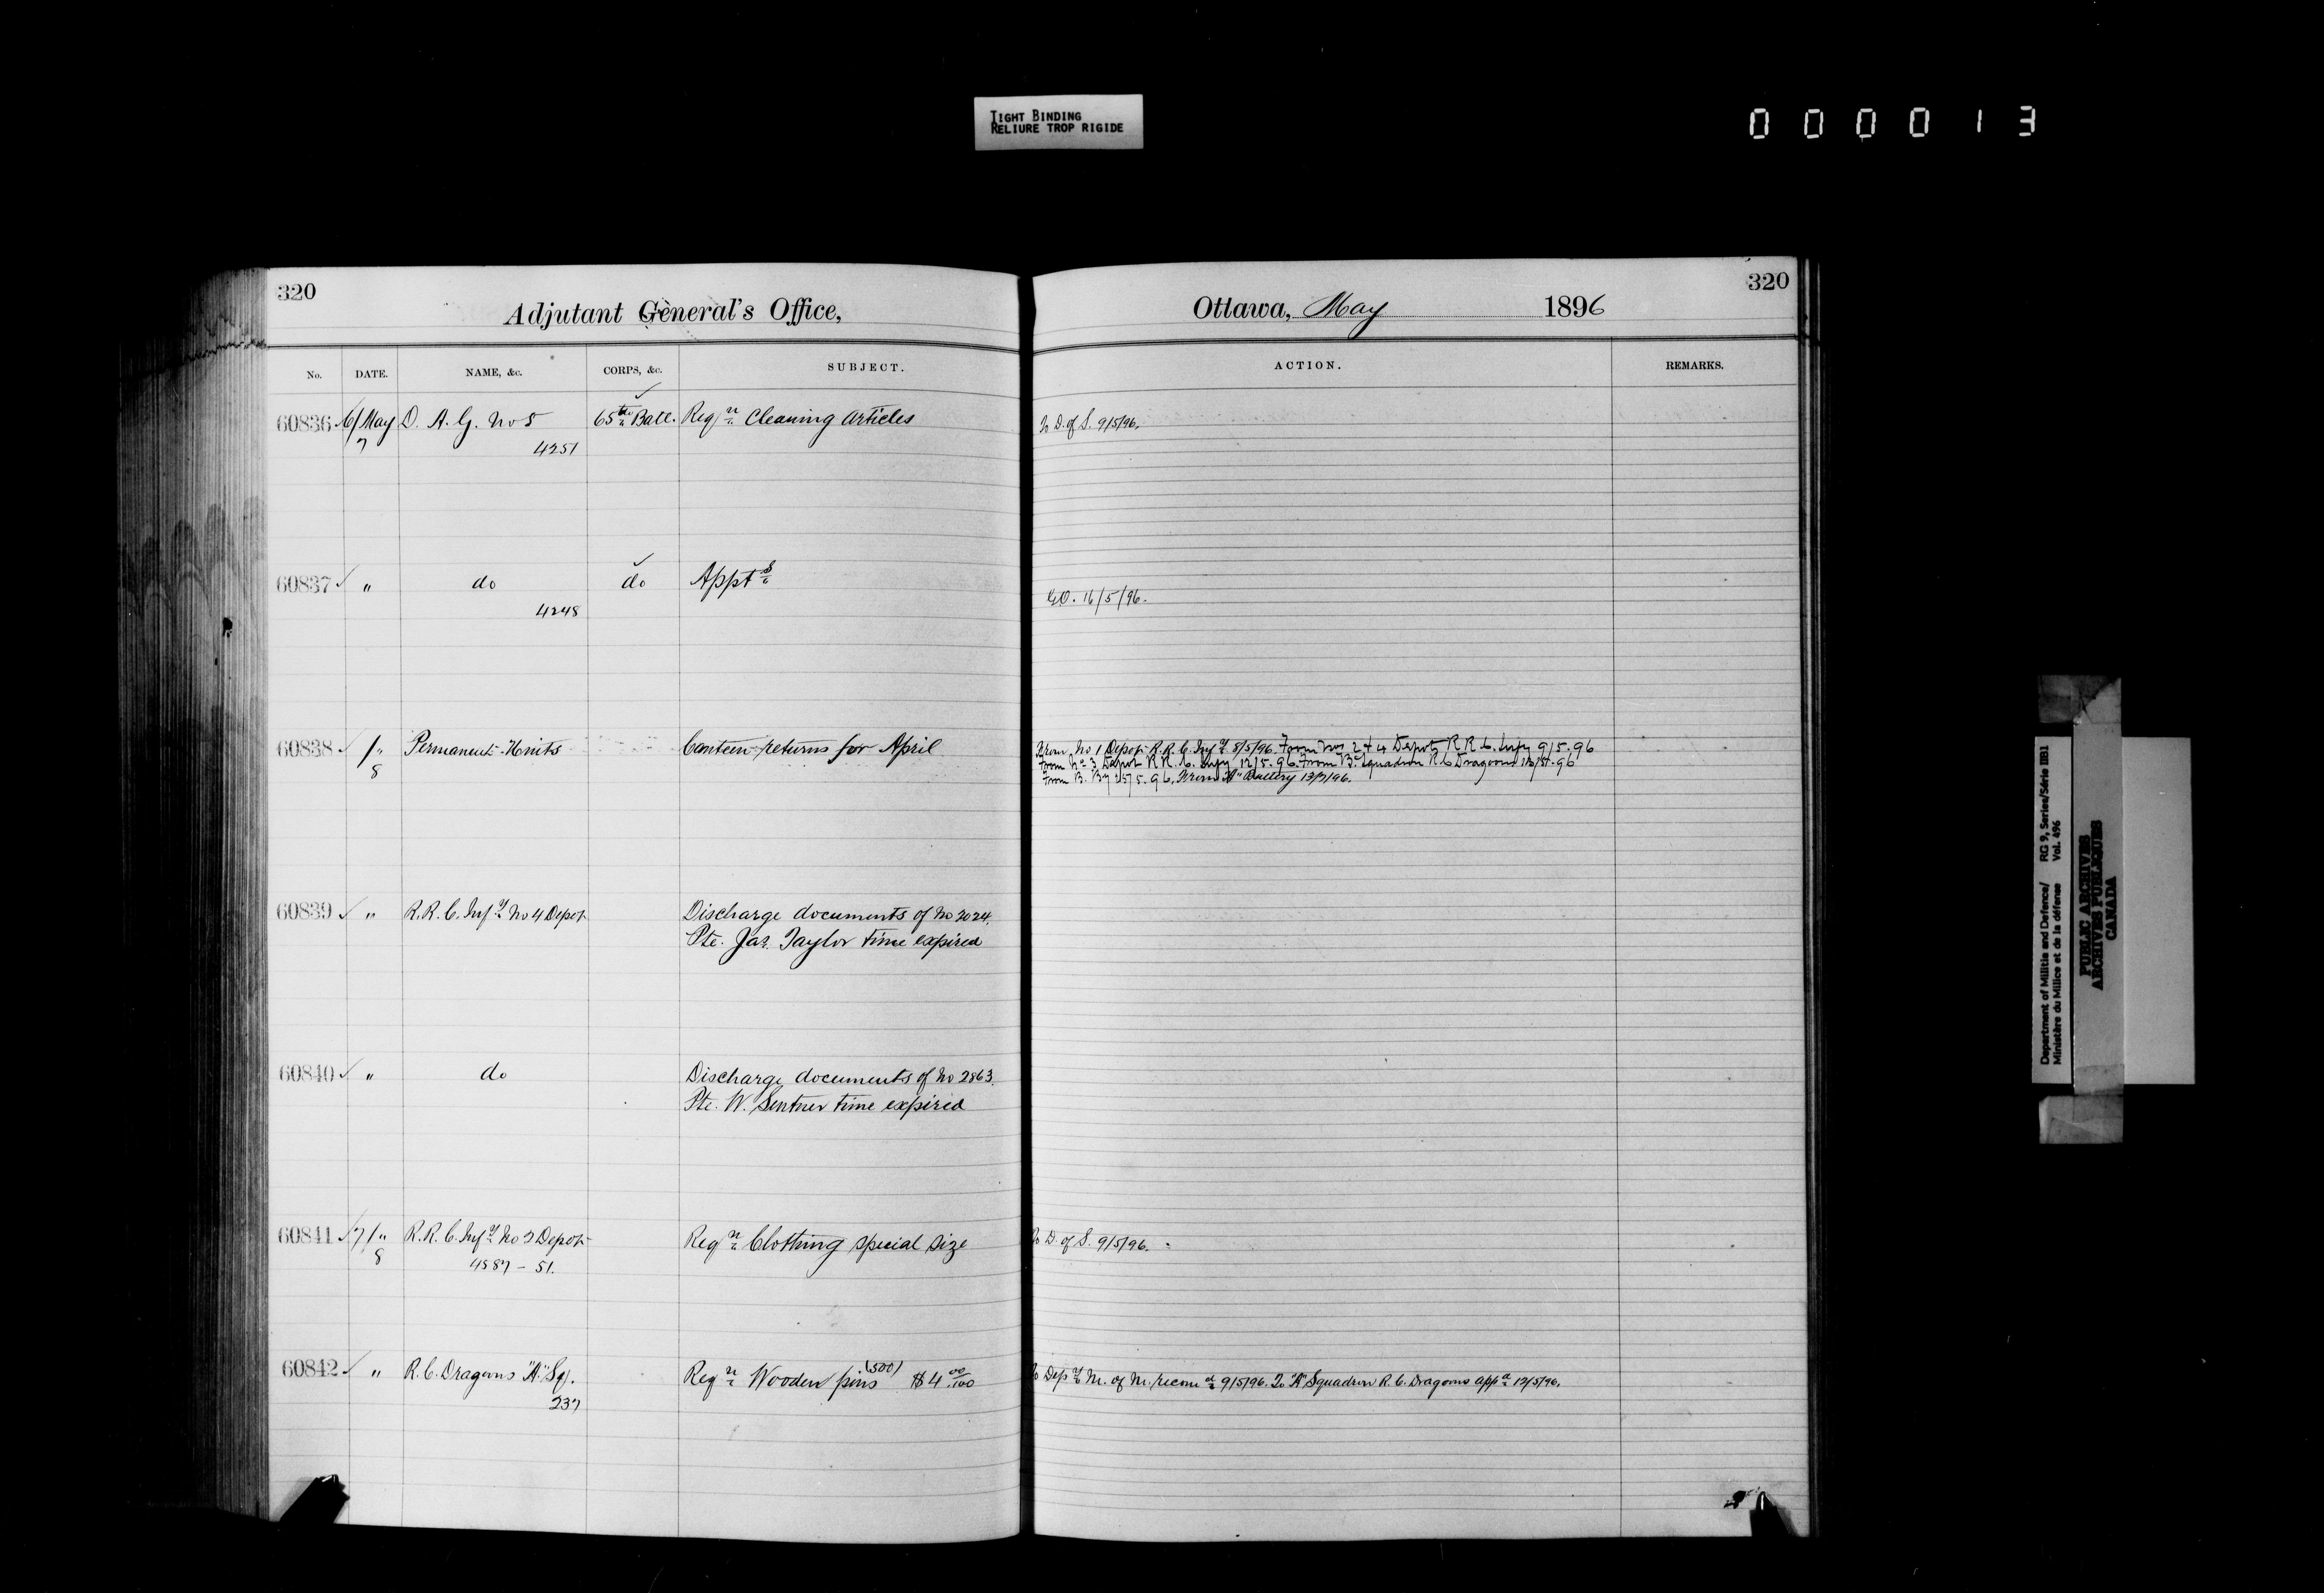 TIGHT BINDING
RELIURE TROP RIGIDE
000013
320
Adjutant General's Office,
No. DATE. NAME, &c. CORPS, &c. SUBJECT.
60836 ✓ 6/May D. A. G. No 5 65th Batt. Reqn Cleaning Articles
7 4251
60837 ✓ " do do Appts
4248
60838 ✓ /" Permanent Units Canteen returns for April
8
60839 ✓ " R.R.C. Infy No 4 Depot Discharge documents of No 3024.
Pte. Jas. Taylor time expired
60840 ✓ " do Discharge documents of No 2863.
Pte. W. Sentner time expired
60841 ✓ 7/" R.R.C. Infy No 3 Depot Reqn Clothing special size
8 4587 - 51.
60842 ✓ " R.C. Dragoons "A" Sq. Reqn Wooden pins (500) $4 00/100
237
320
Ottawa, May 1896
ACTION. REMARKS.
To D. of S. 9/5/96.
GO. 16/5/96.
From No 1 Depot R.R.C. Infy 8/5/96. From Nos 2 & 4 Depots R R C. Infy 9/5.96
From No 3 Depot R R. C. Infy 12/5.96. From B. Squadron R C Dragoons 13/5.96
From B. By 15/5.96. From "A" Battery
To D. of S. 9/5/96.
To Depy M. of M. recomd 9/5/96. To "A" Squadron R. C. Dragoons appd 12/5/96.
Department of Militia and Defence/ RG 9, Series/Série IIB1
Ministère du Milice et de la défense Vol. 496
PUBLIC ARCHIVES
ARCHIVES PUBLIQUES
CANADA